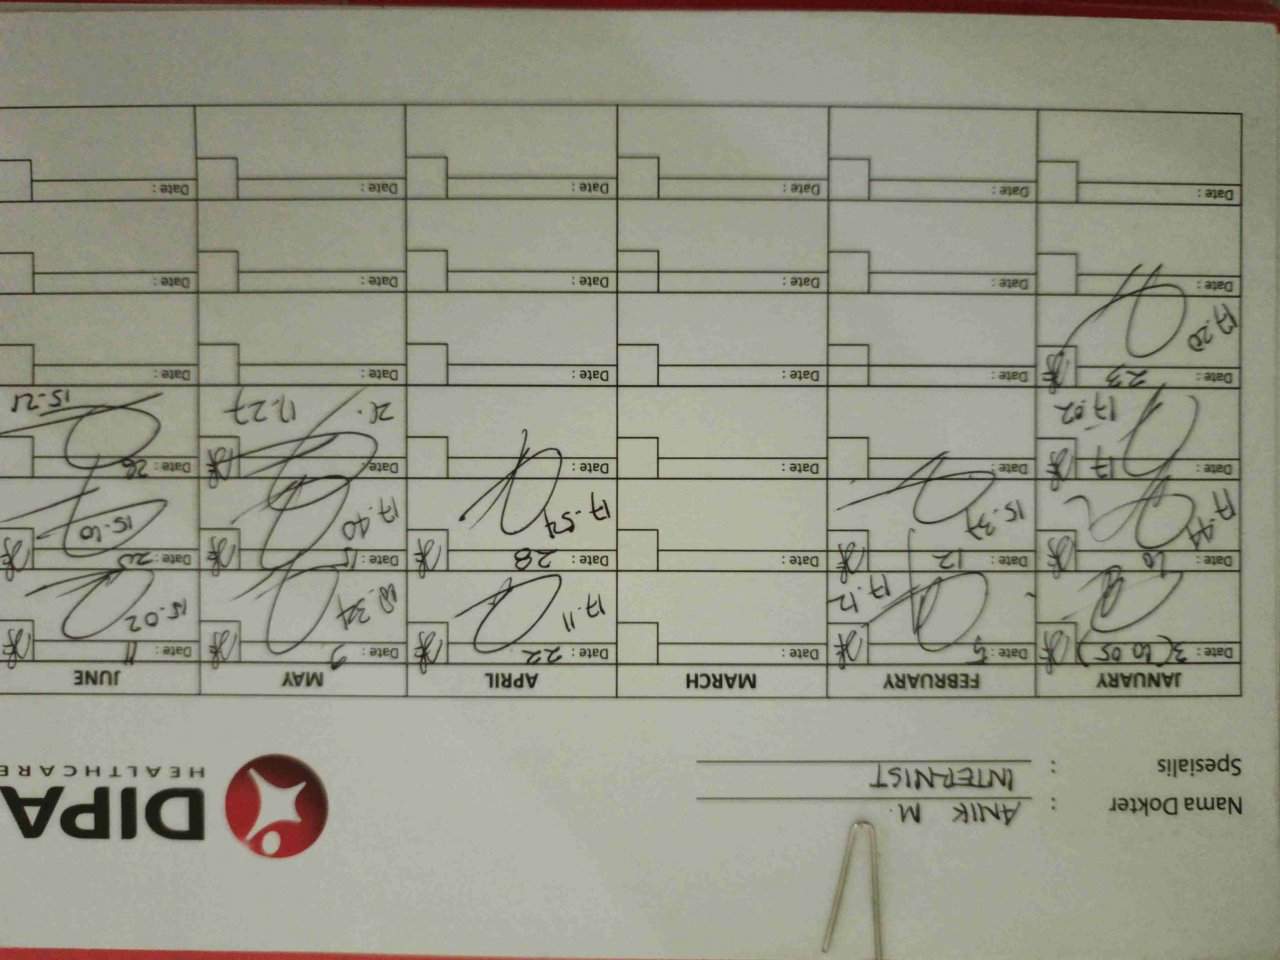 Nama Dokter : ANIK M.
Spesialis : INTERNIST
DIPA
HEALTHCARE
JANUARY FEBRUARY MARCH APRIL MAY JUNE
Date : 3 Date : 5 Date : Date : 22 Date : 9 Date : 11
17.12 17.11 15.02
Date : Date : 12 Date : Date : 28 Date : 15 Date :
17.44 15.37 17.54 17.40
Date : 17 Date : Date : Date : Date : Date : 26
17.02 17.27
Date : 23 Date : Date : Date : Date : Date :
17.20
Date : Date : Date : Date : Date : Date :
Date : Date : Date : Date : Date : Date :